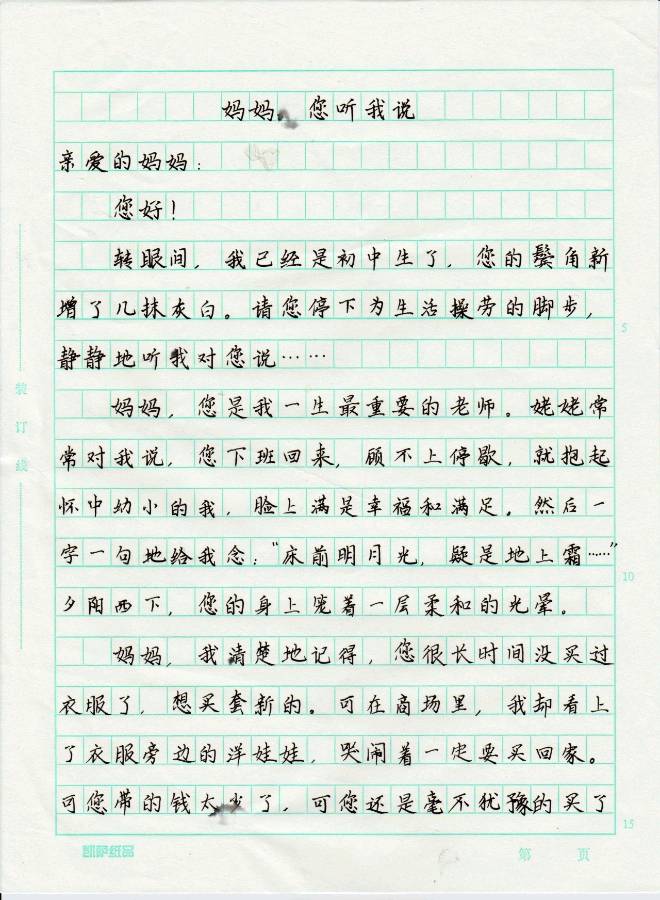 妈妈，您听我说
亲爱的妈妈：
您好！
转眼间，我已经是初中生了，您的鬓角新
增了几抹灰白。请您停下为生活操劳的脚步，
5
静静地听我对您说……
妈妈，您是我一生最重要的老师。姥姥常
常对我说，您下班回来，顾不上停歇，就抱起
怀中幼小的我，脸上满是幸福和满足。然后一
字一句地给我念：“床前明月光，疑是地上霜……”
10
夕阳西下，您的身上笼着一层柔和的光晕。
妈妈，我清楚地记得，您很长时间没买过
衣服了，想买套新的。可在商场里，我却看上
了衣服旁边的洋娃娃，哭闹着一定要买回家。
可您带的钱太少了，可您还是毫不犹豫的买了
15
装订线
凯萨纸品
第 页